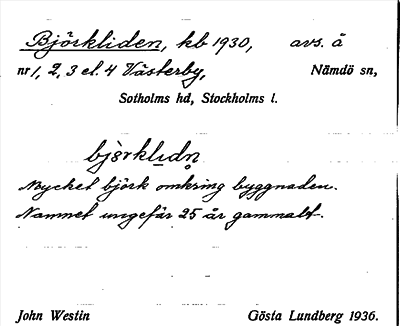 Björkliden, kb 1930, avs. å
nr 1, 2, 3 el. 4 Västerby, Nämdö sn,
Sotholms hd, Stockholms l.
bjö̀rklịdn̥
Mycket björk omkring byggnaden.
Namnet ungefär 25 år gammalt.
John Westin Gösta Lundberg 1936.